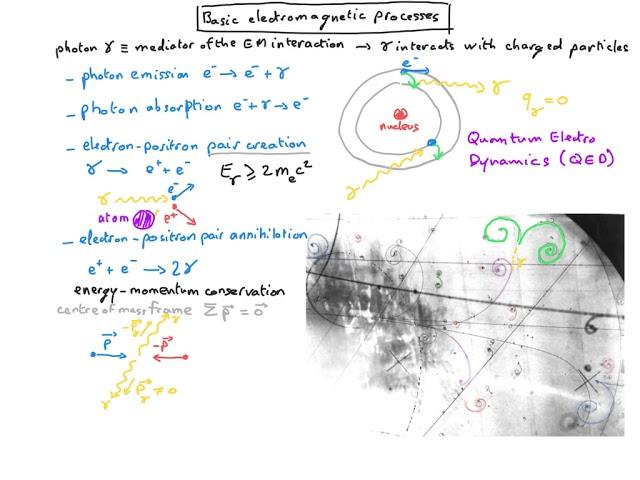 Basic electromagnetic processes
photon γ ≡ mediator of the EM interaction → γ interacts with charged particles
- photon emission e⁻ → e⁻ + γ
- photon absorption e⁻ + γ → e⁻
- electron-positron pair creation
γ → e⁺ + e⁻ E_γ ⩾ 2m_e c²
γ e⁻
atom e⁺
- electron-positron pair annihilation
e⁺ + e⁻ → 2γ
energy-momentum conservation
centre of mass frame Σp⃗ = 0⃗
-p⃗_γ γ
p⃗ -p⃗
γ p⃗_γ ≠ 0
e⁻
γ
q_γ = 0
nucleus
γ
Quantum Electro
Dynamics (QED)
γ